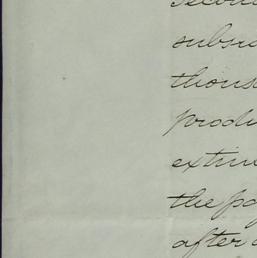 subsc
thous
produ
extin
the pa
after